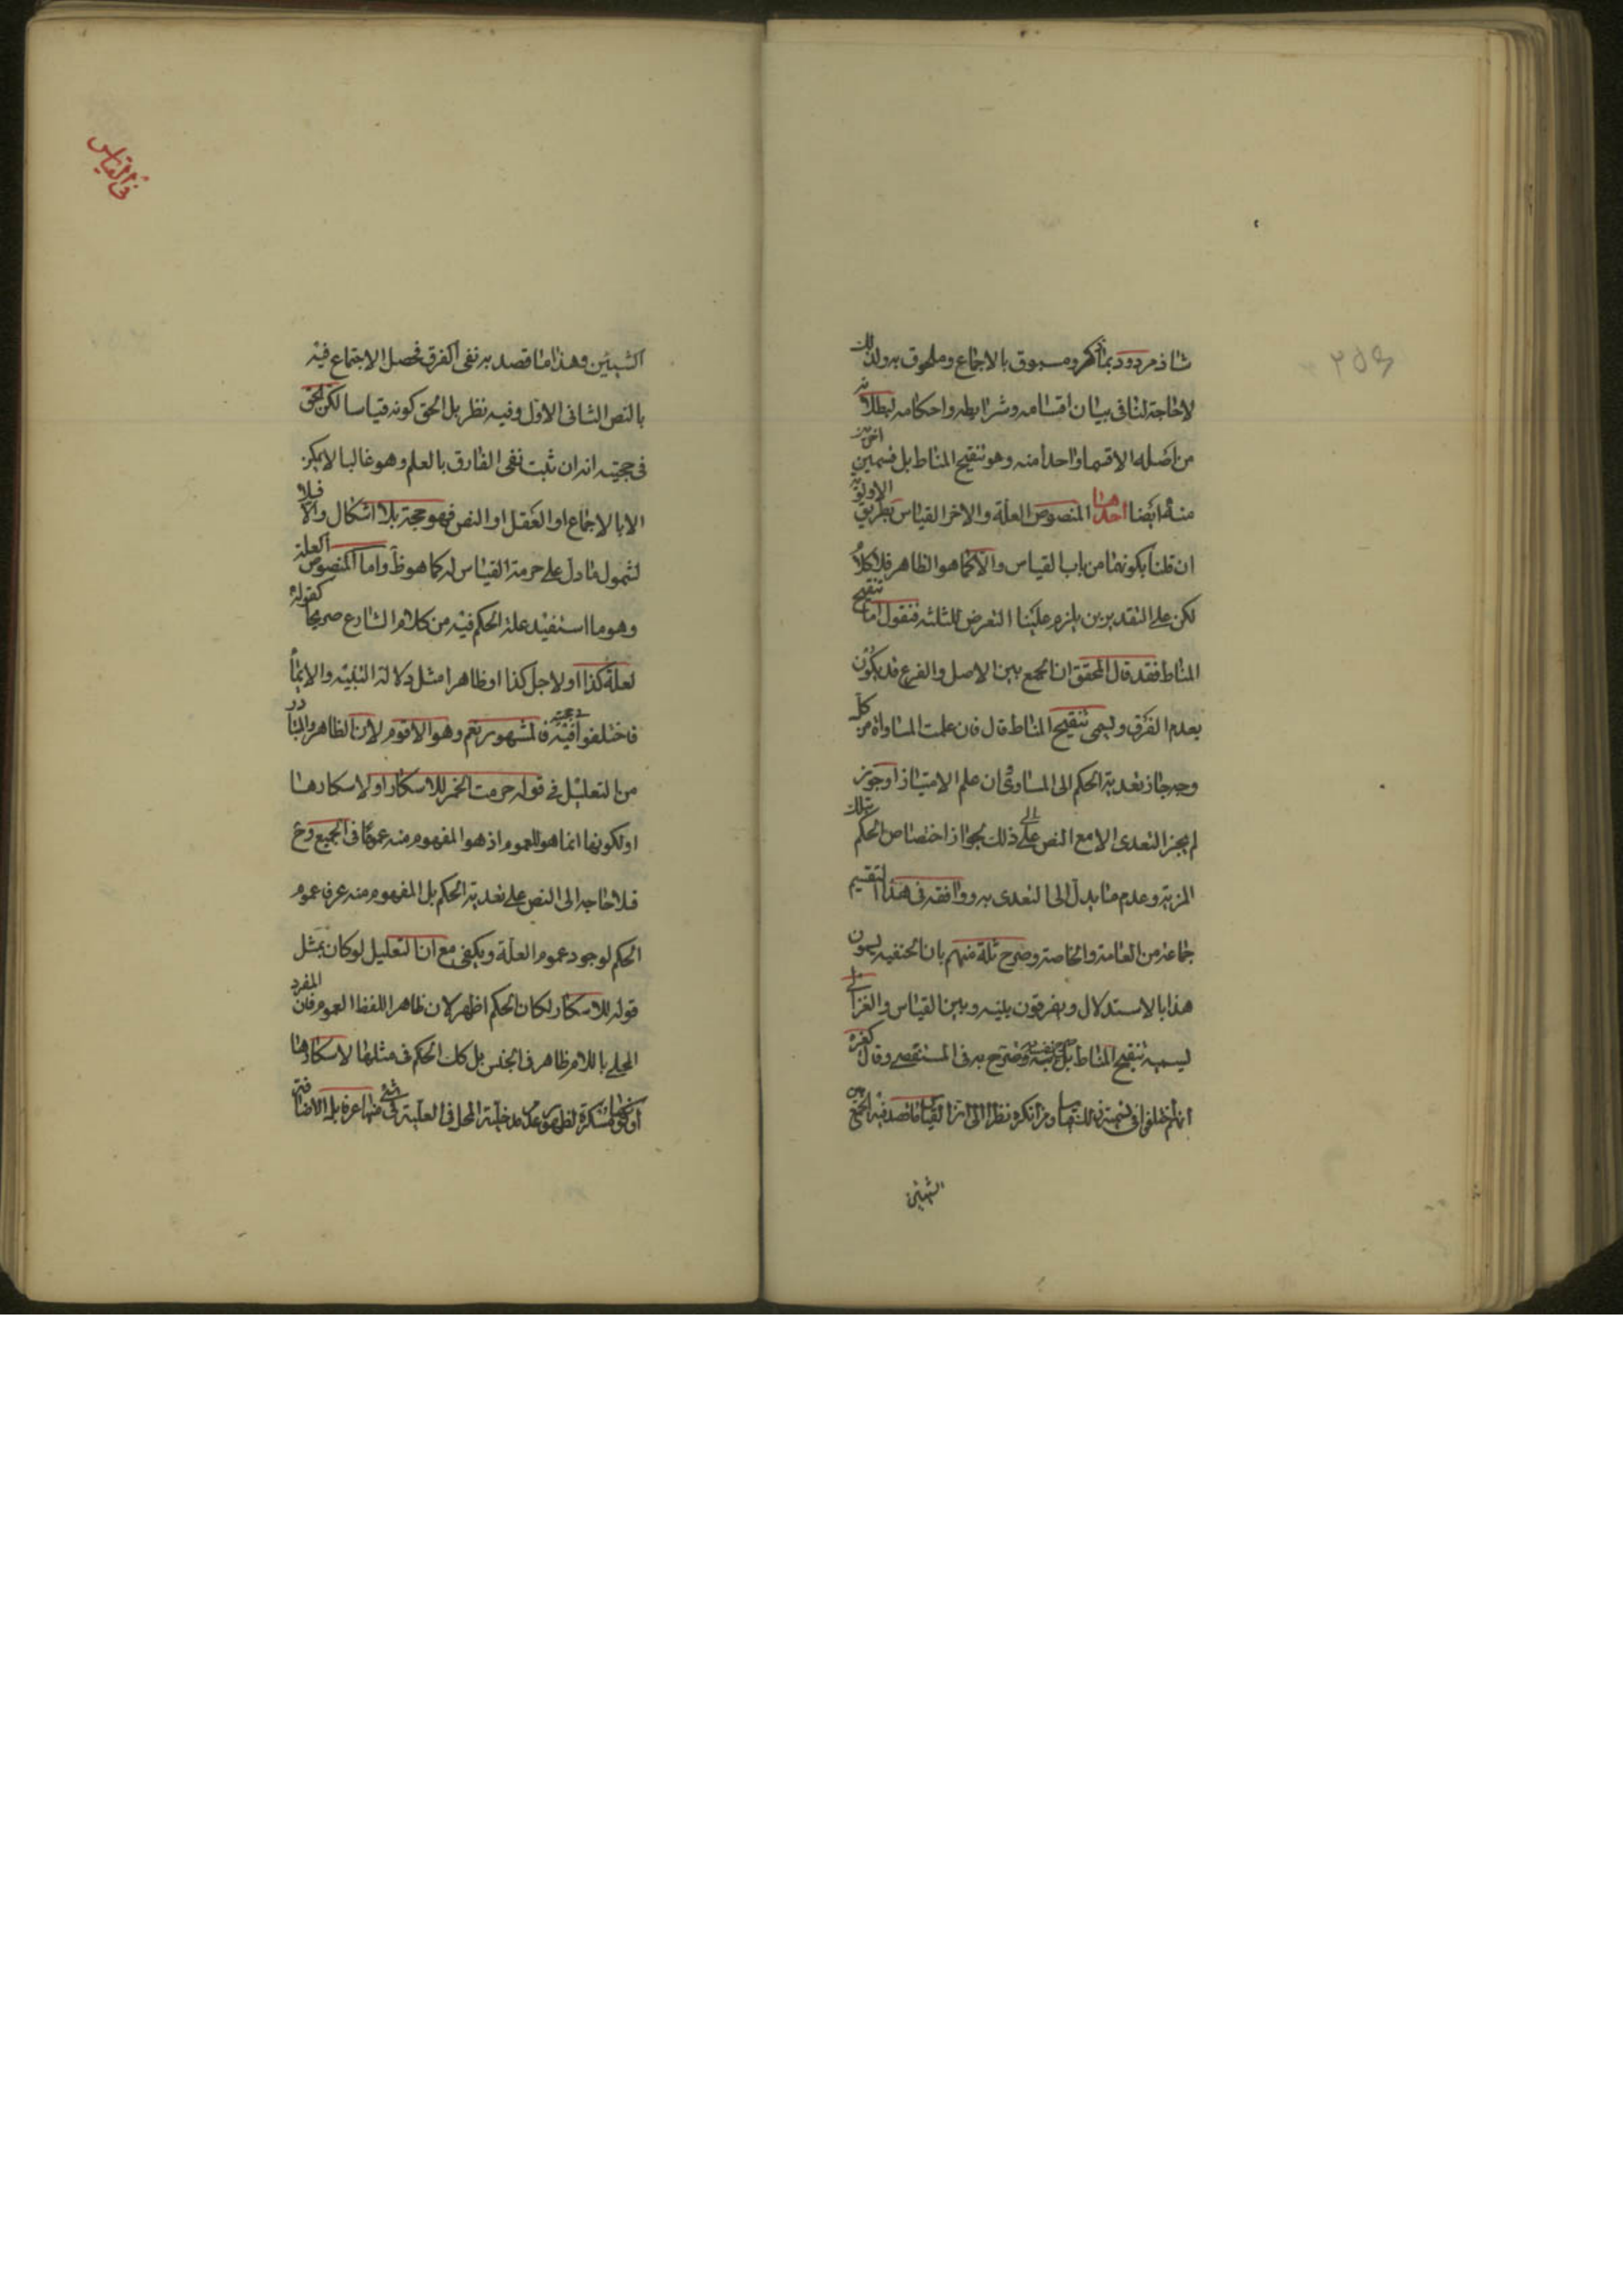 شاذ مردود بما ذكر ومسبوق بالاجماع وملحوق به ولذلك
لا حاجة لنا فى بيان اقسامه وشرايطه واحكامه لبطلانه
من اصله الا قسما واحدا منه وهو تنقيح المناط بل قسمين اخرين
منه ايضا احدهما المنصوص العلة والاخر القياس بطريق الاولوية
ان قلنا بكونهما من باب القياس والا كما هو الظاهر فلا كلام
لكن على التقديرين يلزم علينا التعرض للثلثه فنقول اما تنقيح
المناط فقد قال المحقق ان الجمع بين الاصل والفرع قد يكون
بعدم الفرق ويسمى تنقيح المناط قال فان علمت المساواة من كل
وجه جاز تعدية الحكم الى المساوى وان علم الامتياز او جوز
لم يجز التعدى الا مع النص على ذلك لجواز اختصاص الحكم بتلك
المزية وعدم ما يدل الى التعدى به ووافقه فى هذا التقسيم
جماعة من العامة والخاصة وصرح ثلة منهم بان الحنفيه يسمون
هذا بالاستدلال ويفرقون بينه وبين القياس والغزالى
يسميه تنقيح المناط بل وصرح به فى المستقصى وقال كغيره
انهم اختلفوا فى تسمية ذلك قياسا ومن انكره نظر الى ان القياس ما قصد فيه الجمع بين
الشيئين
فى القياس
الشيئين وهذا ما قصد به نفى الفرق فحصل الاجتماع فيه
بالقصد الثانى لا الاول وفيه نظر بل الحق كونه قياسا لكن الحق
فى حجيته انه ان ثبت نفى الفارق بالعلم وهو غالبا لا يمكن
الا بالاجماع او العقل او النص فهو حجة بلا اشكال والا فلا
لشمول ما دل على حرمة القياس له كما هو ظ واما المنصوص العلة
وهو ما استفيد علة الحكم فيه من كلام الشارع صريحا كقوله
لعلة كذا او لاجل كذا او ظاهرا مثل دلالة التنبيه والايماء
فاختلفوا فى حجيته فالمشهور نعم وهو الاقوم لان الظاهر والمتبادر
من التعليل فى قوله حرمت الخمر للاسكار او لاسكارها
او لكونها انما هو للعموم اذ هو المفهوم منه عموما فى الجميع وح
فلا حاجه الى النص على تعدية الحكم بل المفهوم منه عرفا عموم
الحكم لوجود عموم العلة ويكفى مع ان التعليل لو كان بمثل
قوله للاسكار لكان الحكم اظهر لان ظاهر اللفظ العموم فان المفرد
المحلى باللام ظاهر فى الجنس بل كك الحكم فى مثلها لاسكارها
او كونها مسكرة لظهور عدم مدخلية المحل فى العلية فى شئ منها عرفا بل الاضافة